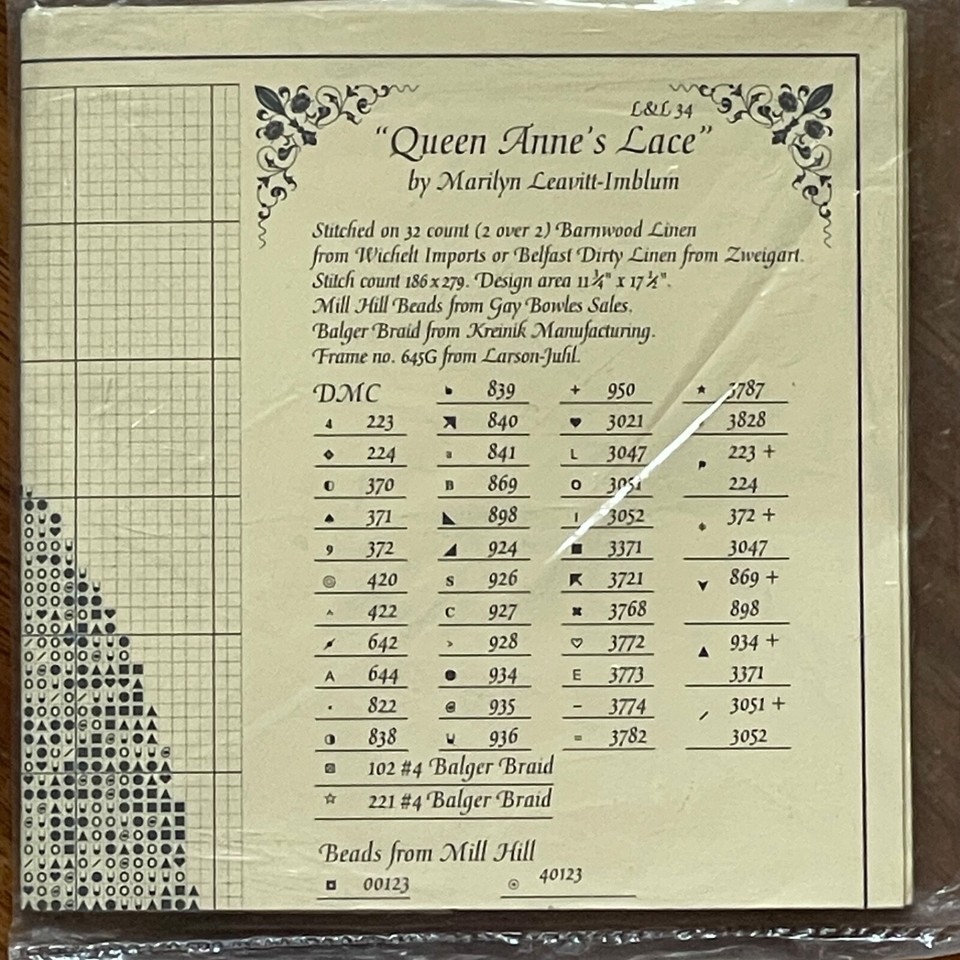 L&L 34
"Queen Anne's Lace"
by Marilyn Leavitt-Imblum
Stitched on 32 count (2 over 2) Barnwood Linen
from Wichelt Imports or Belfast Dirty Linen from Zweigart.
Stitch count 186 x 279. Design area 11 ¾" x 17 ½".
Mill Hill Beads from Gay Bowles Sales.
Balger Braid from Kreinik Manufacturing.
Frame no. 645G from Larson-Juhl.
DMC 839 950 3787
223 840 3021 3828
224 841 3047 223 +
370 869 3051 224
371 898 3052 372 +
372 924 3371 3047
420 926 3721 869 +
422 927 3768 898
642 928 3772 934 +
644 934 3773 3371
822 935 3774 3051 +
838 936 3782 3052
102 #4 Balger Braid
221 #4 Balger Braid
Beads from Mill Hill
00123 40123